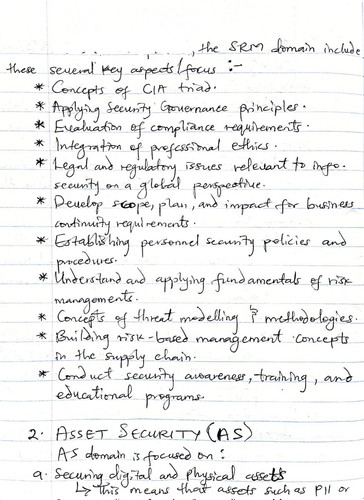 , the SRM domain include
these several key aspects/focus :-
* Concepts of CIA triad.
* Applying Security Governance principles.
* Evaluation of compliance requirements.
* Integration of professional ethics.
* Legal and regulatory issues relevant to info.
security on a global perspective.
* Develop scope, plan, and impact for business
continuity requirements.
* Establishing personnel security policies and
procedures.
* Understand and applying fundamentals of risk
managements.
* Concepts of threat modelling & methodologies.
* Building risk-based management concepts
in the supply chain.
* Conduct security awareness, training, and
educational programs.
2. ASSET SECURITY (AS)
AS domain is focused on :
a. Securing digital and physical assets
↳ This means that assets such as PII or